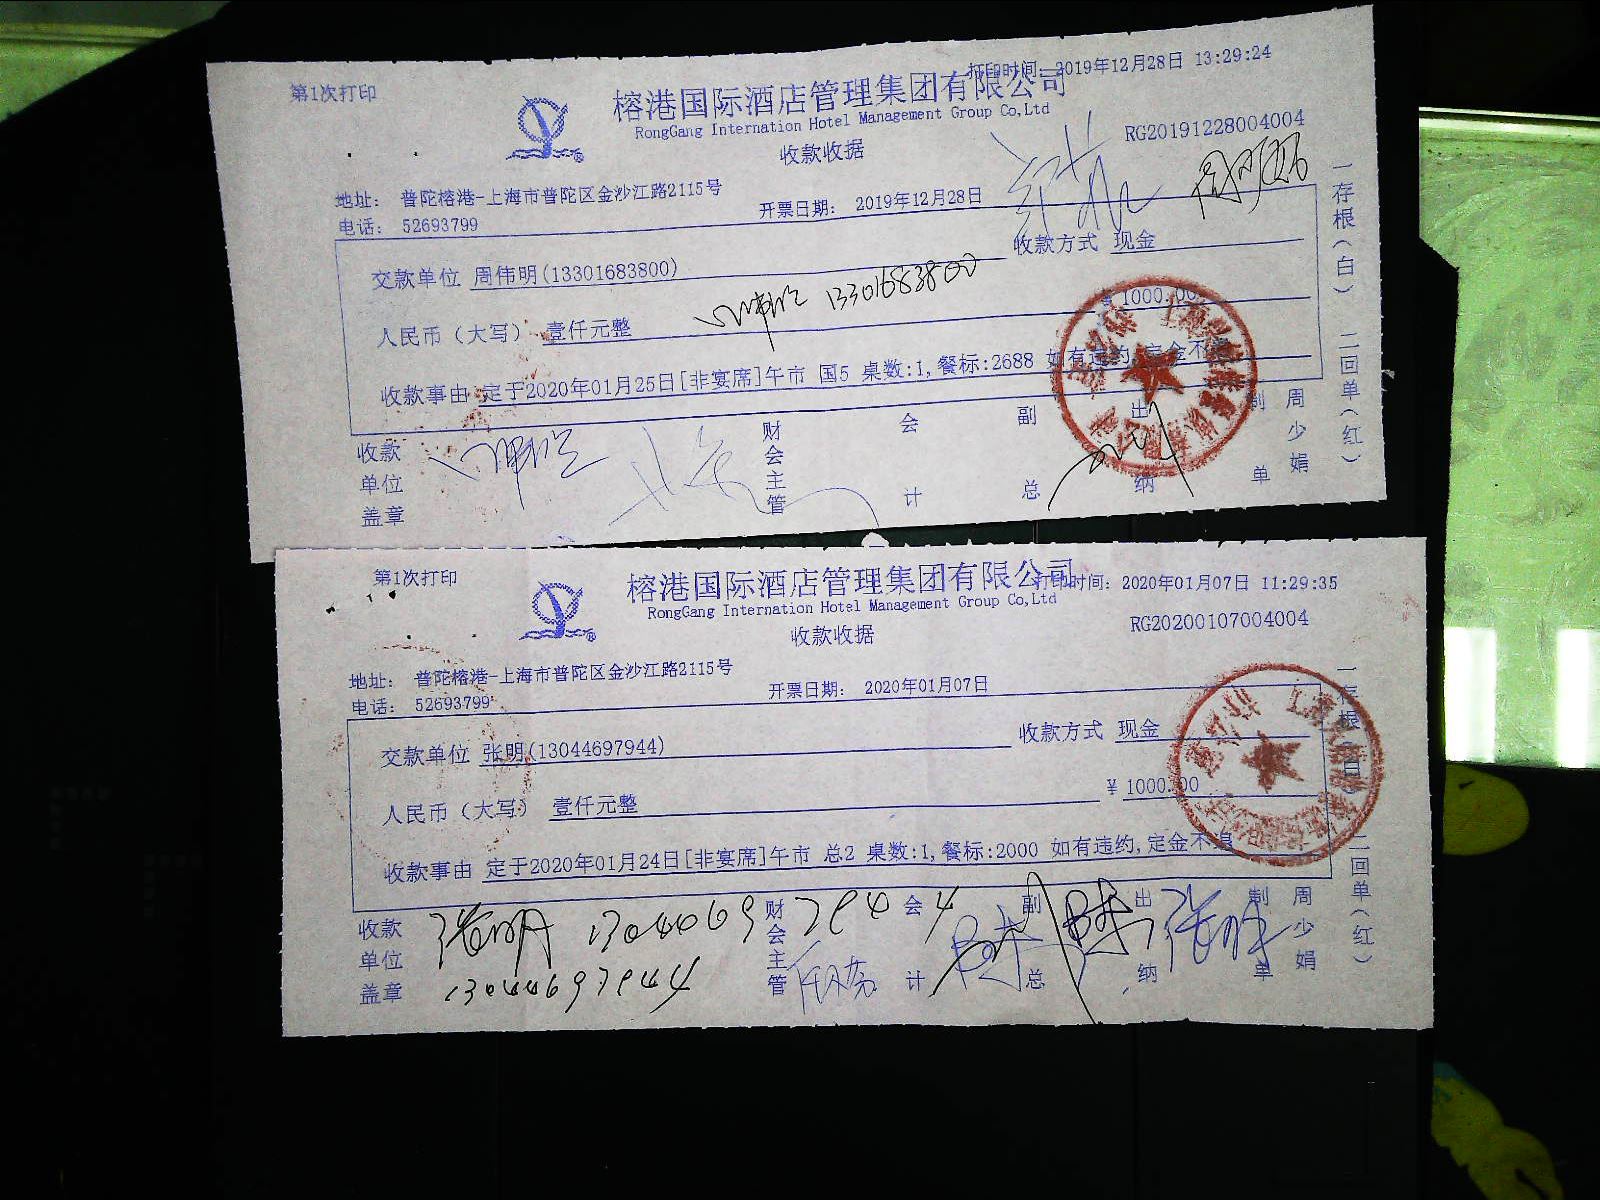 第1次打印
打印时间: 2019年12月28日 13:29:24
榕港国际酒店管理集团有限公司
RongGang Internation Hotel Management Group Co,Ltd
RG20191228004004
收款收据
地址: 普陀榕港-上海市普陀区金沙江路2115号
电话: 52693799
开票日期: 2019年12月28日
收款方式 现金
交款单位 周伟明(13301683800)
13301683800
人民币(大写) 壹仟元整
¥1000.00
收款事由 定于2020年01月25日[非宴席]午市 国5 桌数:1,餐标:2688 如有违约,定金不
收款单位盖章
财会主管
会计
副总
出纳
制单
周少娟
一存根(白) 二回单(红)
第1次打印
打印时间: 2020年01月07日 11:29:35
榕港国际酒店管理集团有限公司
RongGang Internation Hotel Management Group Co,Ltd
RG20200107004004
收款收据
地址: 普陀榕港-上海市普陀区金沙江路2115号
电话: 52693799
开票日期: 2020年01月07日
交款单位 张明(13044697944)
收款方式 现金
人民币(大写) 壹仟元整
¥1000.00
收款事由 定于2020年01月24日[非宴席]午市 总2 桌数:1,餐标:2000 如有违约,定金不退
收款单位盖章
张明
13044697944
财会主管
会计
副总
出纳
制单
周少娟
一存根(白) 二回单(红)